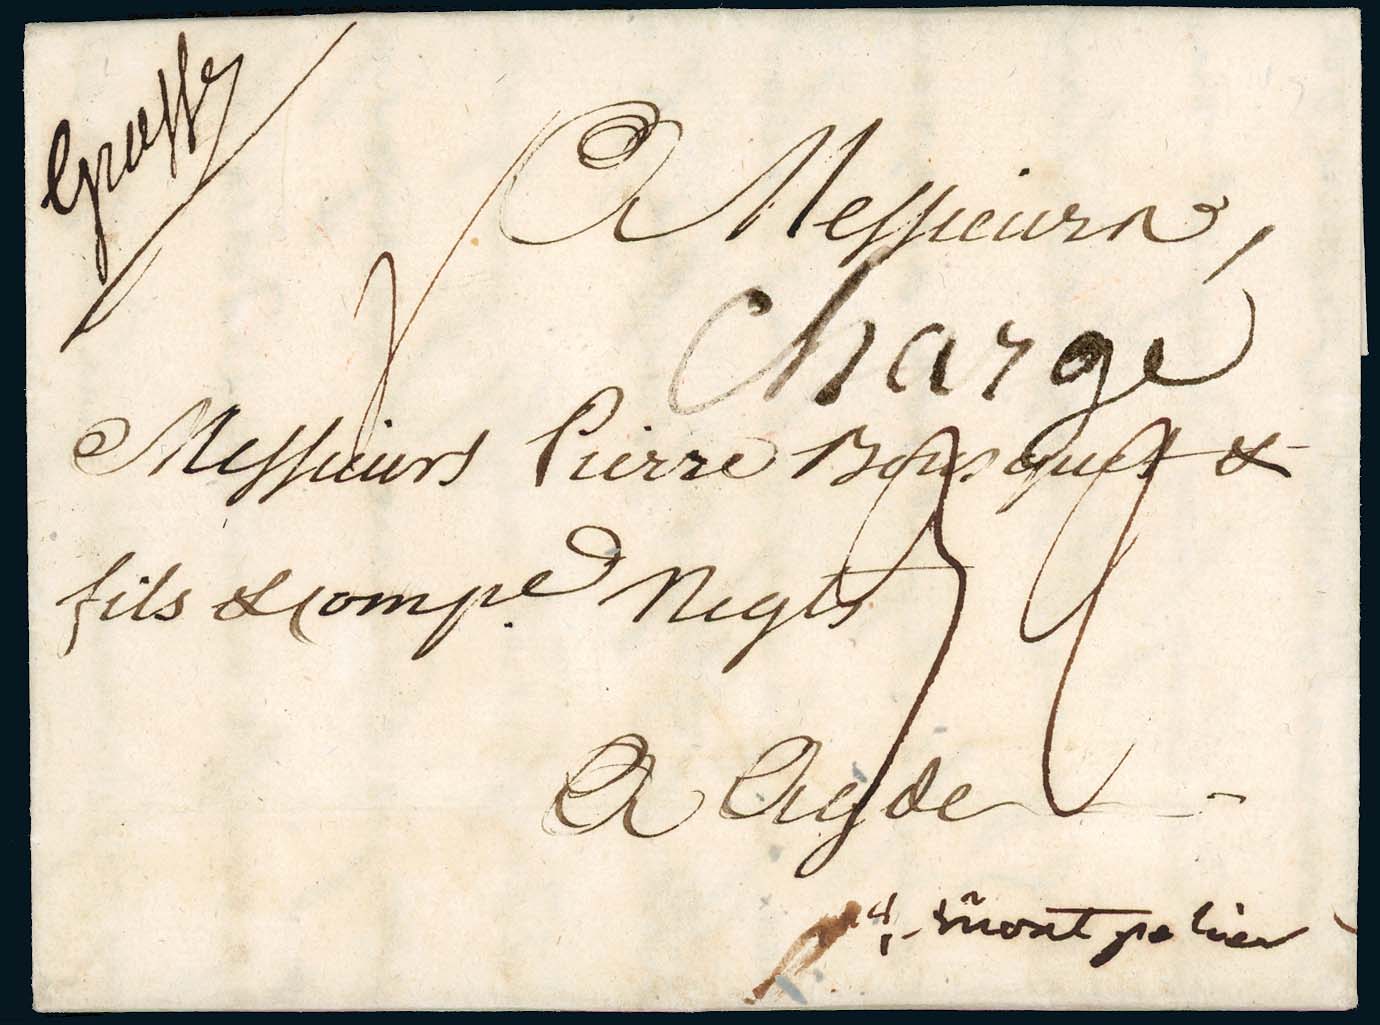 Grasse
A Messieurs,
Charge
Messieurs Pierre Bousquet &
fils & compe. Negts
A Agde
Montpelier